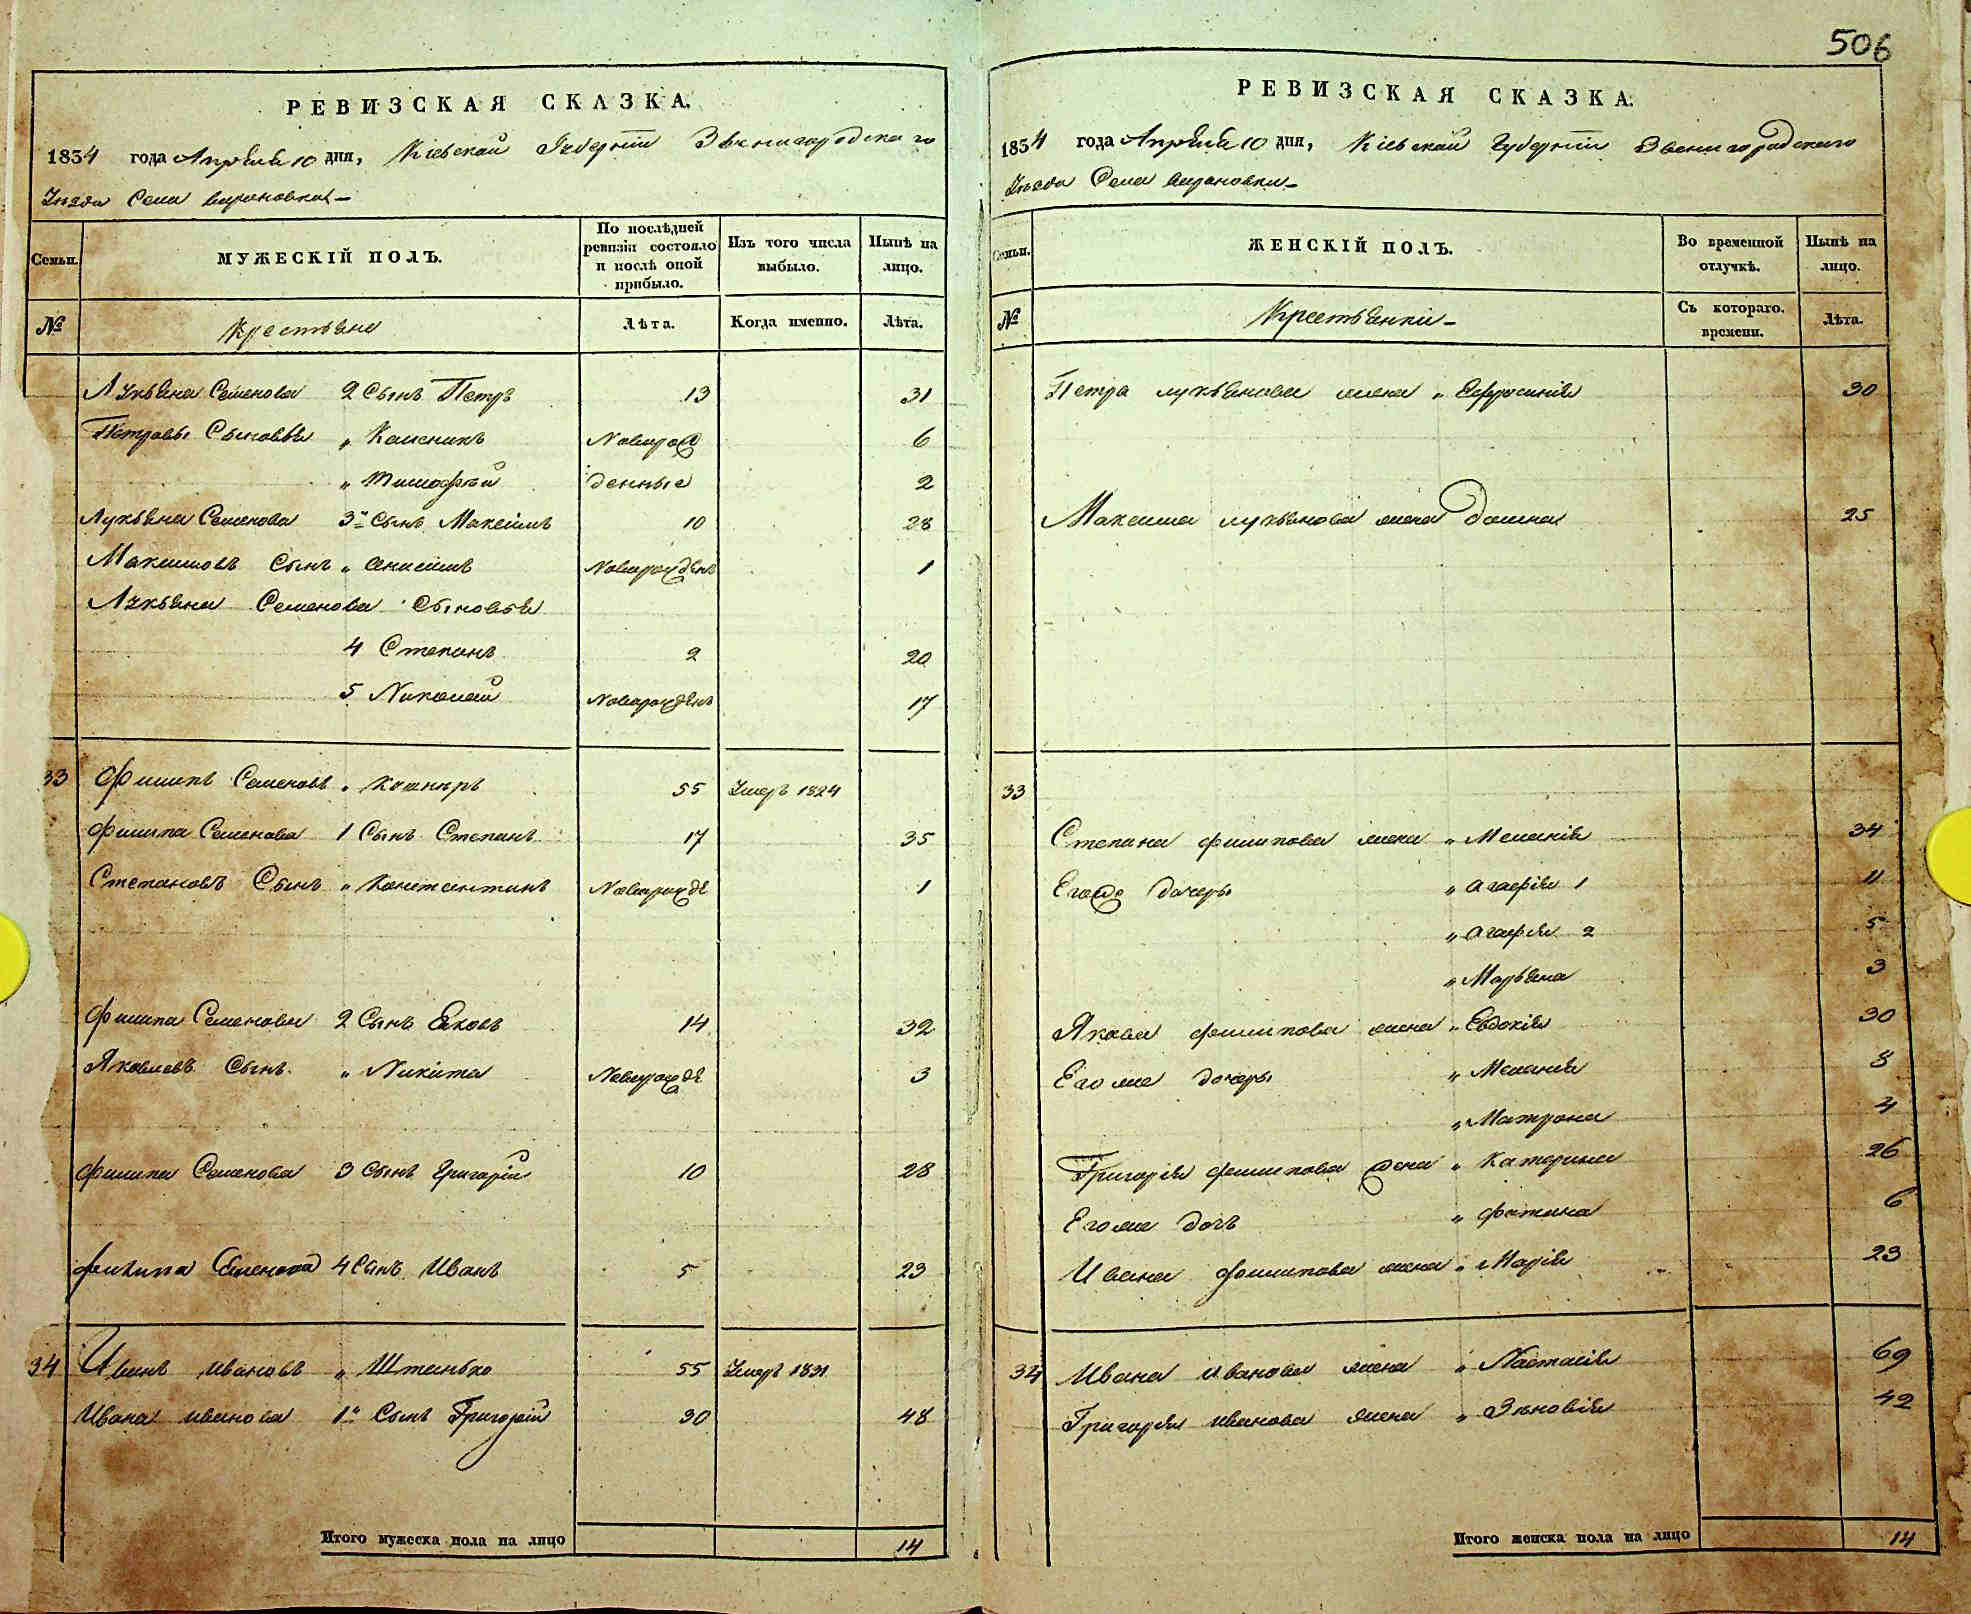 506
РЕВИЗСКАЯ СКАЗКА.
1834 года Апреля 10 дня, Кіевской Губерніи Звенигородскаго
Уезда Села
Семьи.
МУЖЕСКІЙ ПОЛЪ.
По послѣдней ревизіи состояло и послѣ оной прибыло.
Изъ того числа выбыло.
Нынѣ на лицо.
№
Крестьяне
Лѣта.
Когда именно.
Лѣта.
Лукьяна Семенова 2 Сынъ Петръ 13 31
Петровы Сыновья „ Каленикъ Новорож 6
„ Тимофей денные 2
Лукьяна Семенова 3й Сынъ Максимъ 10 28
Максимовъ Сынъ „ Анисимъ Новорожденъ 1
Лукьяна Семенова Сыновья
4 Степанъ 2 20
5 Николай Новорожденъ 17
33 Филипъ Семеновъ „ 55 Умеръ 1824
Филипа Семенова 1 Сынъ Степанъ 17 35
Степановъ Сынъ „ Константинъ Новорожде 1
Филипа Семенова 2 Сынъ Яковъ 14 32
Яковлевъ Сынъ „ Никита Новорожде 3
Филипа Семенова 3 Сынъ Григорій 10 28
Филипа Семенова 4 Сынъ Иванъ 5 23
34 Иванъ Ивановъ „ Штанько 55 Умеръ 1831
Ивана Иванова 1й Сынъ Григорій 30 48
Итого мужеска пола на лицо 14
РЕВИЗСКАЯ СКАЗКА.
1834 года Апреля 10 дня, Кіевской Губерніи Звенигородскаго
Уезда Села
Семьи.
ЖЕНСКІЙ ПОЛЪ.
Во временной отлучкѣ.
Нынѣ на лицо.
№
Крестьянки
Съ котораго времени.
Лѣта.
Петра Лукьянова жена „ Ефросинія 30
Максима Лукьянова жена Домна 25
33
Степана Филипова жена „ Меланія 34
Егожъ дочери „ Агафія 1 11
„ Агафія 2 5
„ Марьяна 3
Якова Филипова жена „ Евдокія 30
Его же дочери „ Меланія 8
„ Матрона 4
Григорія Филипова жена „ Катерина 26
Его же дочь „ Фотина 6
Ивана Филипова жена „ Марія 23
34 Ивана Иванова жена „ Настасія 69
Григорія Иванова жена „ Зѣновія 42
Итого женска пола на лицо 14